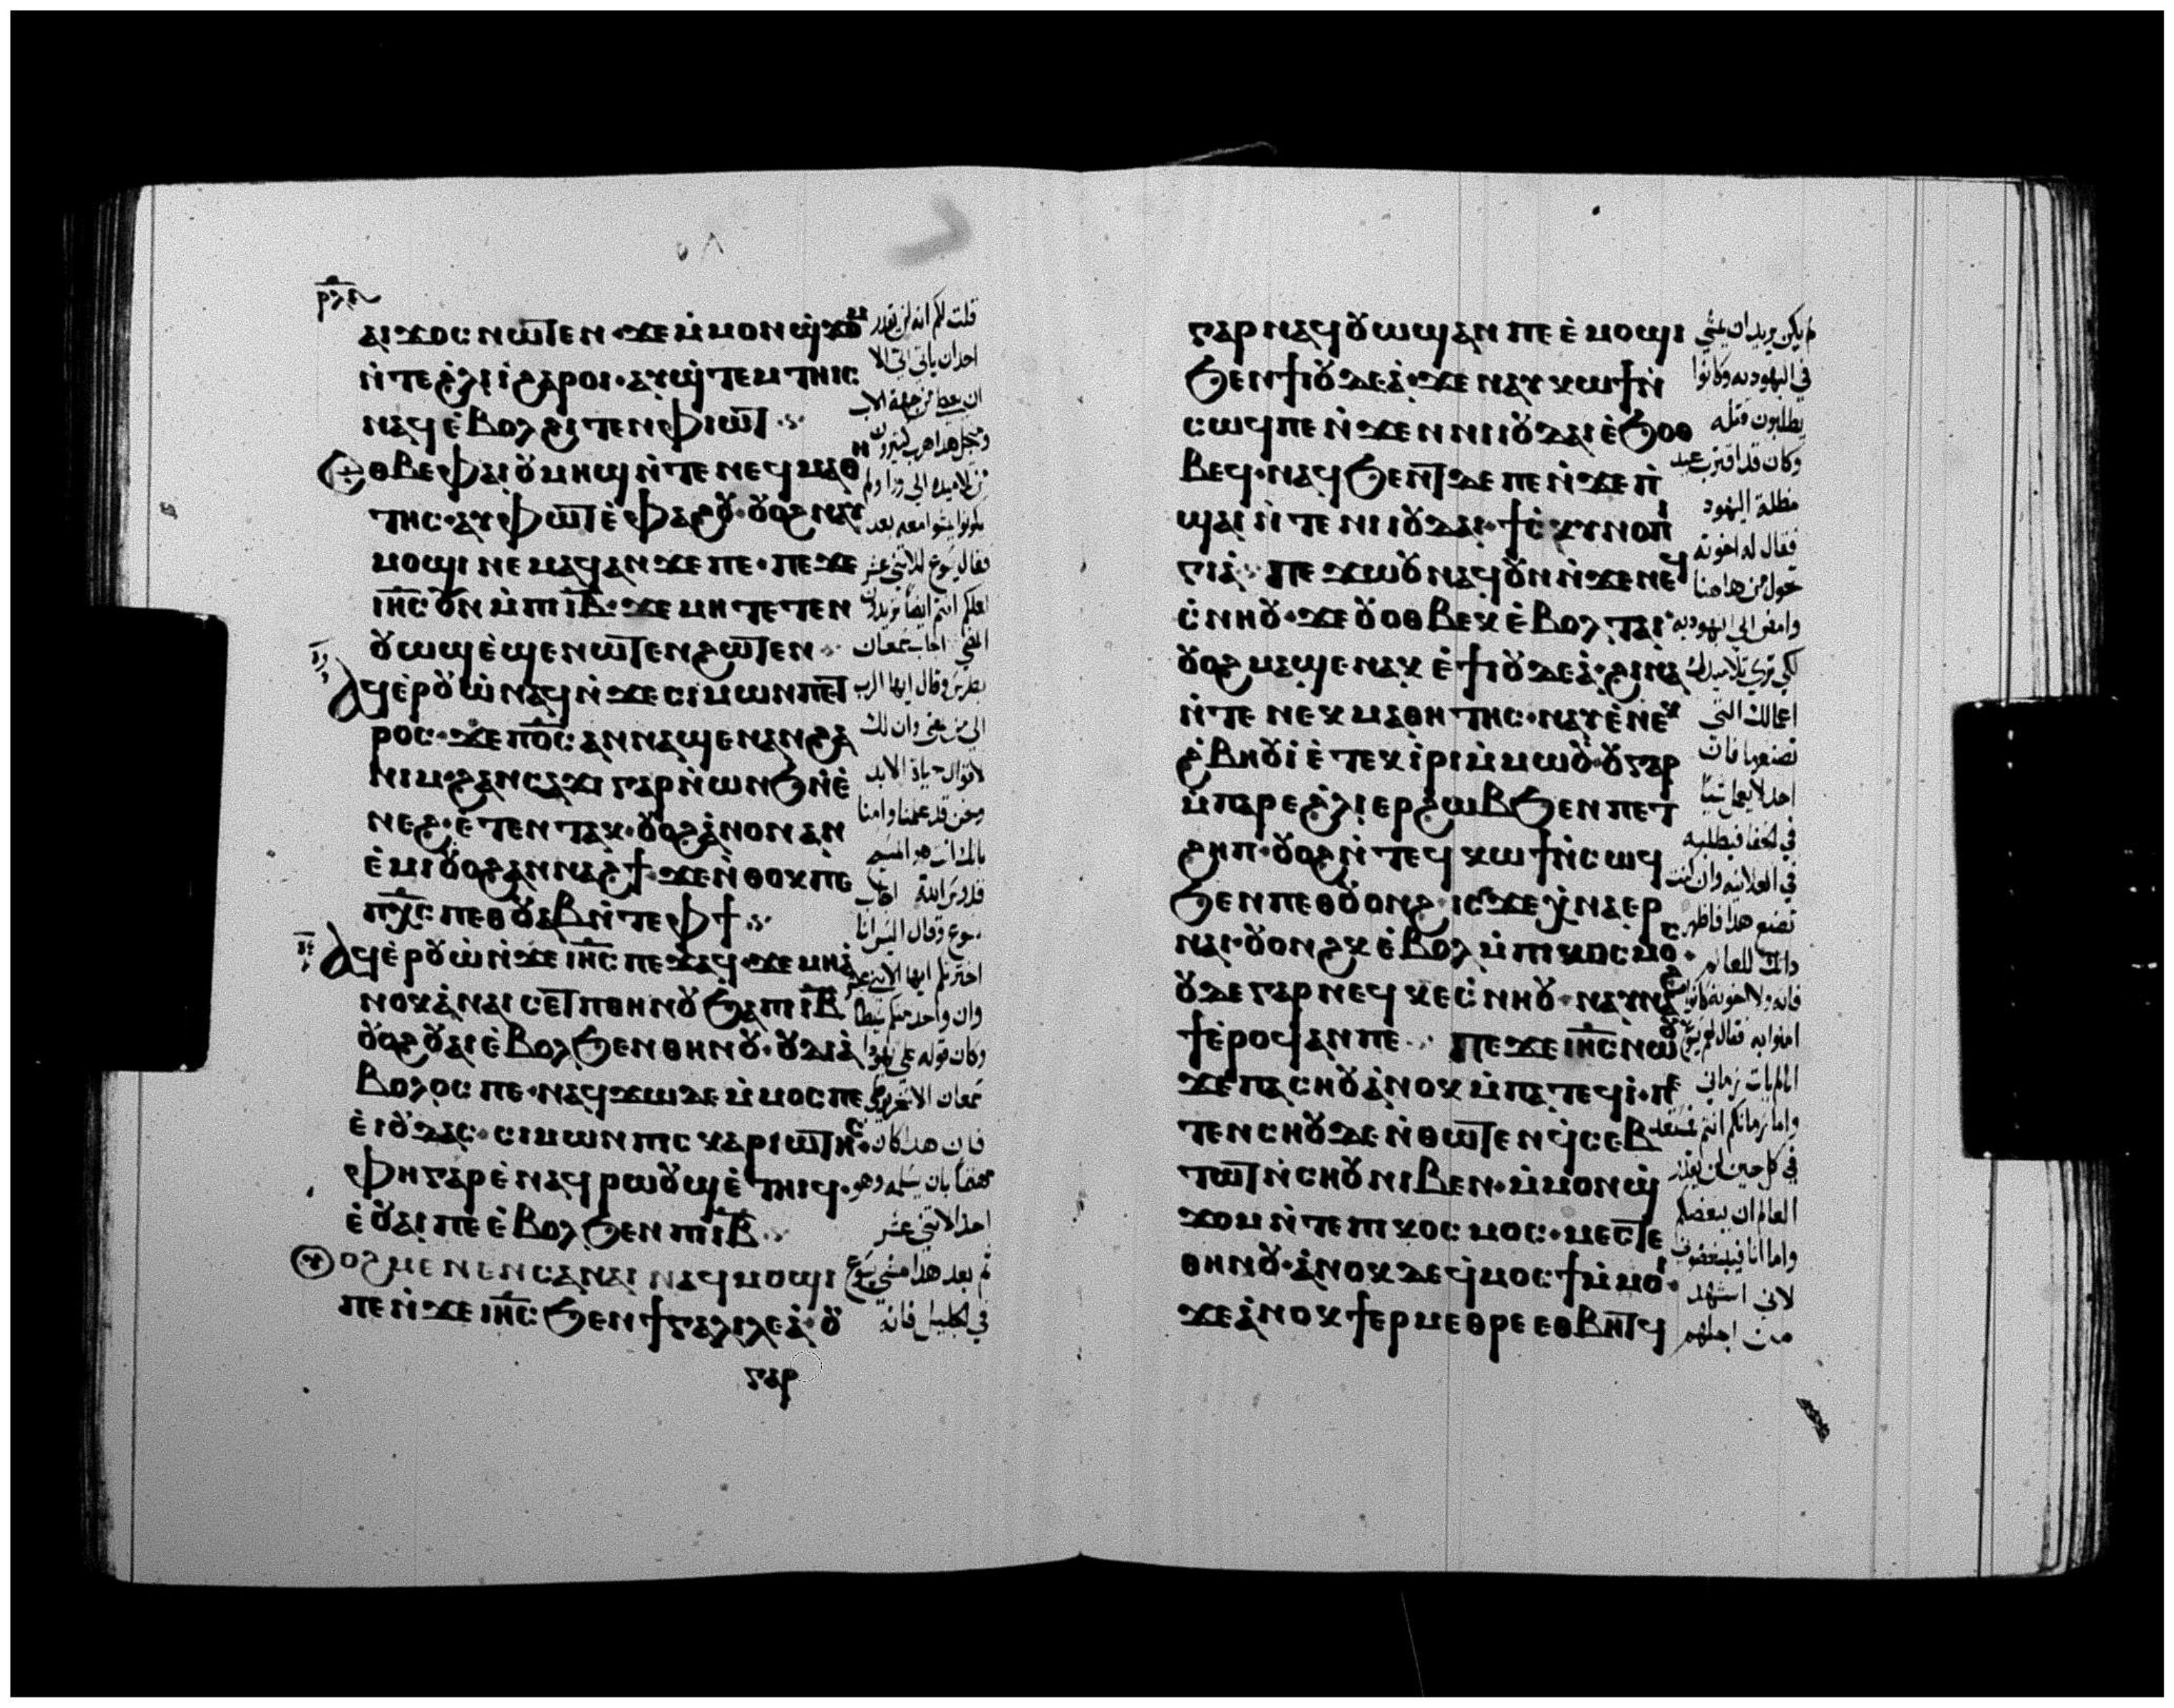 ⲣⲗⲏ
ⲁⲓϫⲟⲥ ⲛⲱⲧⲉⲛ · ϫⲉ ⲙ̇ⲙⲟⲛ ϣ̇ϫⲟⲙ
ⲛ̇ⲧⲉ ϩ̇ⲗⲓ ⲓ̇ ϩⲁⲣⲟⲓ · ⲁⲩϣ̇ⲧⲉⲙⲧⲏⲓⲥ
ⲛⲁϥ ⲉ̇ⲃⲟⲗ ϩⲓⲧⲉⲛ ⲫⲓⲱⲧ
ⲉⲑⲃⲉ ⲫⲁⲓ ⲟⲩⲙⲏϣ ⲛ̇ⲧⲉ ⲛⲉϥⲙⲁⲑⲏ
ⲧⲏⲥ · ⲁⲩⲫⲱⲧ ⲉ̇ⲫⲁϩⲟⲩ · ⲟⲩⲟϩ ⲛⲁⲩ
ⲙⲟϣⲓ ⲛⲉⲙⲁϥ ⲁⲛ ϫⲉ ⲡⲉ · ⲡⲉϫⲉ
ⲓⲏⲥ ⲟⲩⲛ ⲙ̇ⲡⲓⲓⲃ̅ · ϫⲉ ⲙⲏ ⲧⲉⲧⲉⲛ
ⲟⲩⲱϣ ⲉ̇ϣⲉⲛⲱⲧⲉⲛ ϩⲱⲧⲉⲛ
ⲁϥⲉ̇ⲣⲟⲩⲱ̇ ⲛⲁϥ ⲛ̇ϫⲉ ⲥⲓⲙⲱⲛ ⲡⲉⲧ
ⲣⲟⲥ · ϫⲉ ⲡⲟ̅ⲥ̅ ⲁⲛⲛⲁϣⲉⲛⲁⲛ ϩⲁ
ⲛⲓⲙ · ϩⲁⲛⲥⲁϫⲓ ⲅⲁⲣ ⲛ̇ⲱⲛϧ ⲛ̇ⲉ̇
ⲛⲉϩ · ⲉ̇ⲧⲉⲛⲧⲁⲕ · ⲟⲩⲟϩ ⲁ̇ⲛⲟⲛ ⲁⲛ
ⲉ̇ⲙⲓ ⲟⲩⲟϩ ⲁⲛⲛⲁϩϯ · ϫⲉ ⲛ̇ⲑⲟⲕ ⲡⲉ
ⲡⲭ̅ⲥ̅ ⲡⲉⲑⲟⲩⲁⲃ ⲛ̇ⲧⲉ ⲫϯ
ⲁϥⲉ̇ⲣⲟⲩⲱ̇ ⲛ̇ϫⲉ ⲓⲏⲥ ⲡⲉϫⲁϥ · ϫⲉ ⲙⲏ ⲁ̇
ⲛⲟⲕ ⲁ̇ⲛⲁⲓⲥⲉⲧⲡ ⲑⲏⲛⲟⲩ ϧⲁ ⲡⲓⲓⲃ̅
ⲟⲩⲟϩ ⲟⲩⲁⲓ ⲉ̇ⲃⲟⲗ ϧⲉⲛ ⲑⲏⲛⲟⲩ · ⲟⲩⲇⲓⲁ̇
ⲃⲟⲗⲟⲥ ⲡⲉ · ⲛⲁϥϫⲱ ⲇⲉ ⲙ̇ⲙⲟⲥ ⲡⲉ
ⲉ̇ⲓⲟⲩⲇⲁⲥ · ⲥⲓⲙⲱⲛ ⲡⲓⲥⲕⲁⲣⲓⲱⲧⲏⲥ ·
ⲫⲏ ⲅⲁⲣ ⲉ̇ⲛⲁϥⲣⲱⲟⲩϣ ⲉ̇ⲧⲏⲓϥ ·
ⲉ̇ⲟⲩⲁⲓ ⲡⲉ ⲉ̇ⲃⲟⲗ ϧⲉⲛ ⲡⲓⲓⲃ̅
ⲟⲩⲟϩ ⲙⲉⲛⲉⲛⲥⲁ ⲛⲁⲓ ⲛⲁϥⲙⲟϣⲓ
ⲡⲉ ⲛ̇ϫⲉ ⲓⲏⲥ ϧⲉⲛ ϯⲅⲁⲗⲓⲗⲉⲁ̇ · ⲟⲩ
ⲅⲁⲣ
قلت لكم انه لن يقدر
احد ان ياتي اليّ الا
ان يعطا من جهة الاب
ومن اجل هذا هرب كثيرون
من تلاميذه الى ورا ولم
يكونوا يمشوا معه بعد
فقال يسوع للاثنى عشر
لعلكم انتم ايضاً تريدون
المضي اجاب سمعان
بطرس وقال ايها الرب
الى من نمضي وان لك
لاقوال حياة الابد
ونحن قد علمنا وامنا
بانك انت هو المسيح
قدوس الله اجاب
يسوع وقال اليس انا
اخترتكم ايها الاثنى عشر
وان واحد منكم شيطان
وكان قوله على يهودا
سمعان الاسخريوطي
فان هذا كان
مهتماً بان يسلمه وهو
احد الاثنى عشر
ثم بعد هذا مشى يسوع
في الجليل فانه
ⲅⲁⲣ ⲛⲁϥⲟⲩⲱϣ ⲁⲛ ⲡⲉ ⲉ̇ⲙⲟϣⲓ
ϧⲉⲛ ϯⲓⲟⲩⲇⲉⲁ̇ · ϫⲉ ⲛⲁⲩⲕⲱϯ ⲛ̇
ⲥⲱϥ ⲡⲉ ⲛ̇ϫⲉ ⲛⲓⲓⲟⲩⲇⲁⲓ ⲉ̇ϧⲟⲑ
ⲃⲉϥ · ⲛⲁϥϧⲉⲛⲧ ⲇⲉ ⲡⲉ ⲛ̇ϫⲉ ⲡ̇
ϣⲁⲓ ⲛ̇ⲧⲉ ⲛⲓⲓⲟⲩⲇⲁⲓ · ϯⲥ̇ⲕⲩⲛⲟⲡⲓ
ⲅⲓⲁ̇ · ⲡⲉϫⲱⲟⲩ ⲛⲁϥ ⲟⲩⲛ ⲛ̇ϫⲉ ⲛⲉϥ
ⲥ̇ⲛⲏⲟⲩ · ϫⲉ ⲟⲩⲟⲑⲃⲉⲕ ⲉ̇ⲃⲟⲗ ⲧⲁⲓ
ⲟⲩⲟϩ ⲙⲁϣⲉⲛⲁⲕ ⲉ̇ϯⲓⲟⲩⲇⲉⲁ̇ · ϩⲓⲛⲁ
ⲛ̇ⲧⲉ ⲛⲉⲕⲙⲁⲑⲏⲧⲏⲥ · ⲛⲁⲩ ⲉ̇ⲛⲉⲕ
ϩ̇ⲃⲏⲟⲩⲓ̇ ⲉ̇ⲧⲉⲕⲓ̇ⲣⲓ ⲙ̇ⲙⲱⲟⲩ · ⲟⲩ ⲅⲁⲣ
ⲙ̇ⲡⲁⲣⲉ ϩ̇ⲗⲓ ⲉⲣϩⲱⲃ ϧⲉⲛ ⲡⲉⲧ
ϩⲏⲡ · ⲟⲩⲟϩ ⲛ̇ⲧⲉϥⲕⲱϯ ⲛ̇ⲥⲱϥ
ϧⲉⲛ ⲡⲉⲑⲟⲩⲟⲛϩ · ⲓⲥϫⲉ ⲭ̇ⲛⲁⲉⲣ
ⲛⲁⲓ · ⲟⲩⲟⲛϩⲕ ⲉ̇ⲃⲟⲗ ⲙ̇ⲡⲓⲕⲟⲥⲙⲟⲥ ·
ⲟⲩⲇⲉ ⲅⲁⲣ ⲛⲉϥⲕⲉⲥ̇ⲛⲏⲟⲩ · ⲛⲁⲩⲛⲁϩ
ϯ ⲉ̇ⲣⲟϥ ⲁⲛ ⲡⲉ ·· ⲡⲉϫⲉ ⲓⲏⲥ ⲛⲱⲟⲩ
ϫⲉ ⲡⲁⲥⲏⲟⲩ ⲁ̇ⲛⲟⲕ ⲙ̇ⲡⲁⲧⲉϥⲓ̇ · ⲡⲉ
ⲧⲉⲛⲥⲏⲟⲩ ⲇⲉ ⲛ̇ⲑⲱⲧⲉⲛ ϥ̇ⲥⲉⲃ
ⲧⲱⲧ ⲛ̇ⲥⲏⲟⲩ ⲛⲓⲃⲉⲛ · ⲙ̇ⲙⲟⲛ ϣ̇
ϫⲟⲙ ⲛ̇ⲧⲉ ⲡⲓⲕⲟⲥⲙⲟⲥ · ⲙⲉⲥⲧⲉ
ⲑⲏⲛⲟⲩ · ⲁ̇ⲛⲟⲕ ⲇⲉ ϥ̇ⲙⲟⲥϯ ⲙ̇ⲙⲟⲓ ·
ϫⲉ ⲁ̇ⲛⲟⲕ ϯⲉⲣⲙⲉⲑⲣⲉ ⲉⲑⲃⲏⲧϥ
لم يكن يريد ان يمشي
في اليهودية وكانوا
يطلبون قتله
وكان قد اقترب عيد
مظلة اليهود
فقال له اخوته
تحول من هاهنا
وامض الى اليهودية
لكي ترى تلاميذك
اعمالك التي
تصنعها فان
احد لا يعمل شيا
في الخفا فيطلبه
في العلانية وان كنت
تصنع هذا فاظهر
ذاتك للعالم
فانه ولا اخوته كانوا
امنوا به فقال لهم يسوع
اما لم يات زماني
واما زمانكم انتم فمستعد
في كل حين لن يقدر
العالم ان يبغضكم
واما انا فيبغضون
لاني اشهد
من اجلهم